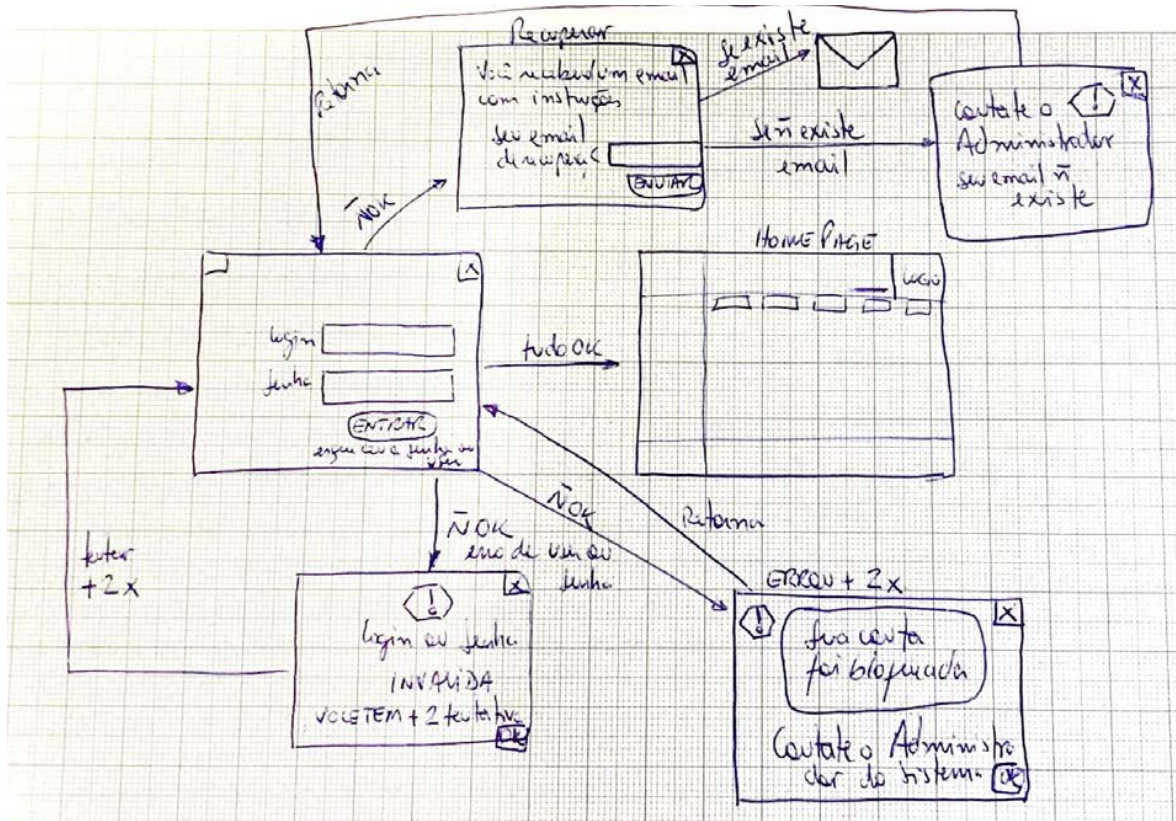 Recuperar
X
Você receberá um email
com instruções
seu email
de recuperaç
ENVIAR
se existe
email
se ñ existe
email
X
!
Contate o
Administrador
seu email ñ
existe
Retorna
ÑOK
X
login
senha
ENTRAR
esqueceu a senha ou
tudo OK
HOME PAGE
LOGO
ÑOK
erro de user ou
senha
ÑOK
Retorna
tentar
+ 2 x
X
!
login ou senha
INVALIDA
VOCE TEM + 2 tentativa
OK
ERROU + 2 x
X
!
sua conta
foi bloqueada
Contate o Administra
dor do sistema
OK